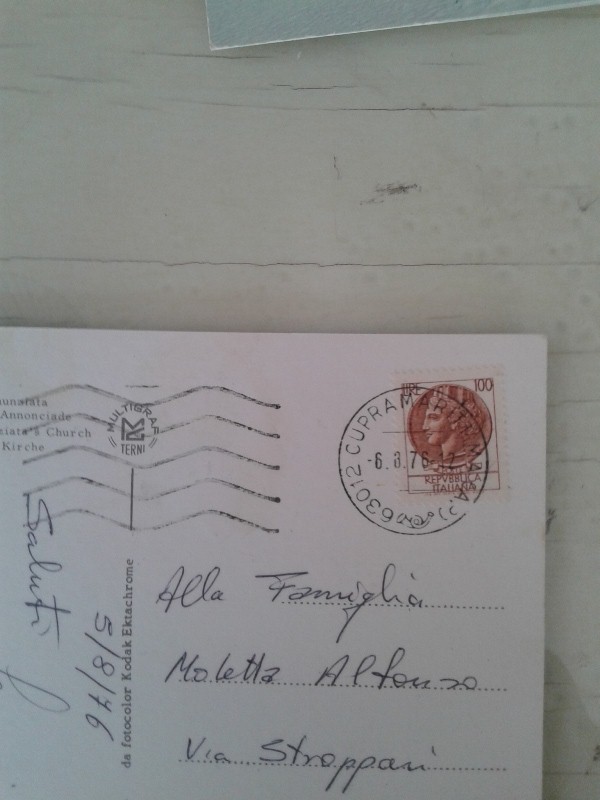 unziata
Annonciade
ziata's Church
Kirche
MULTIGRAF
TERNI
LIRE 100
REPVBBLICA
ITALIANA
63012 CUPRA MARITTIMA (A.P.)
-6.8.76-12
Saluti
5/8/76
da fotocolor Kodak Ektachrome
Alla Famiglia
Moletta Alfonso
Via Stroppari